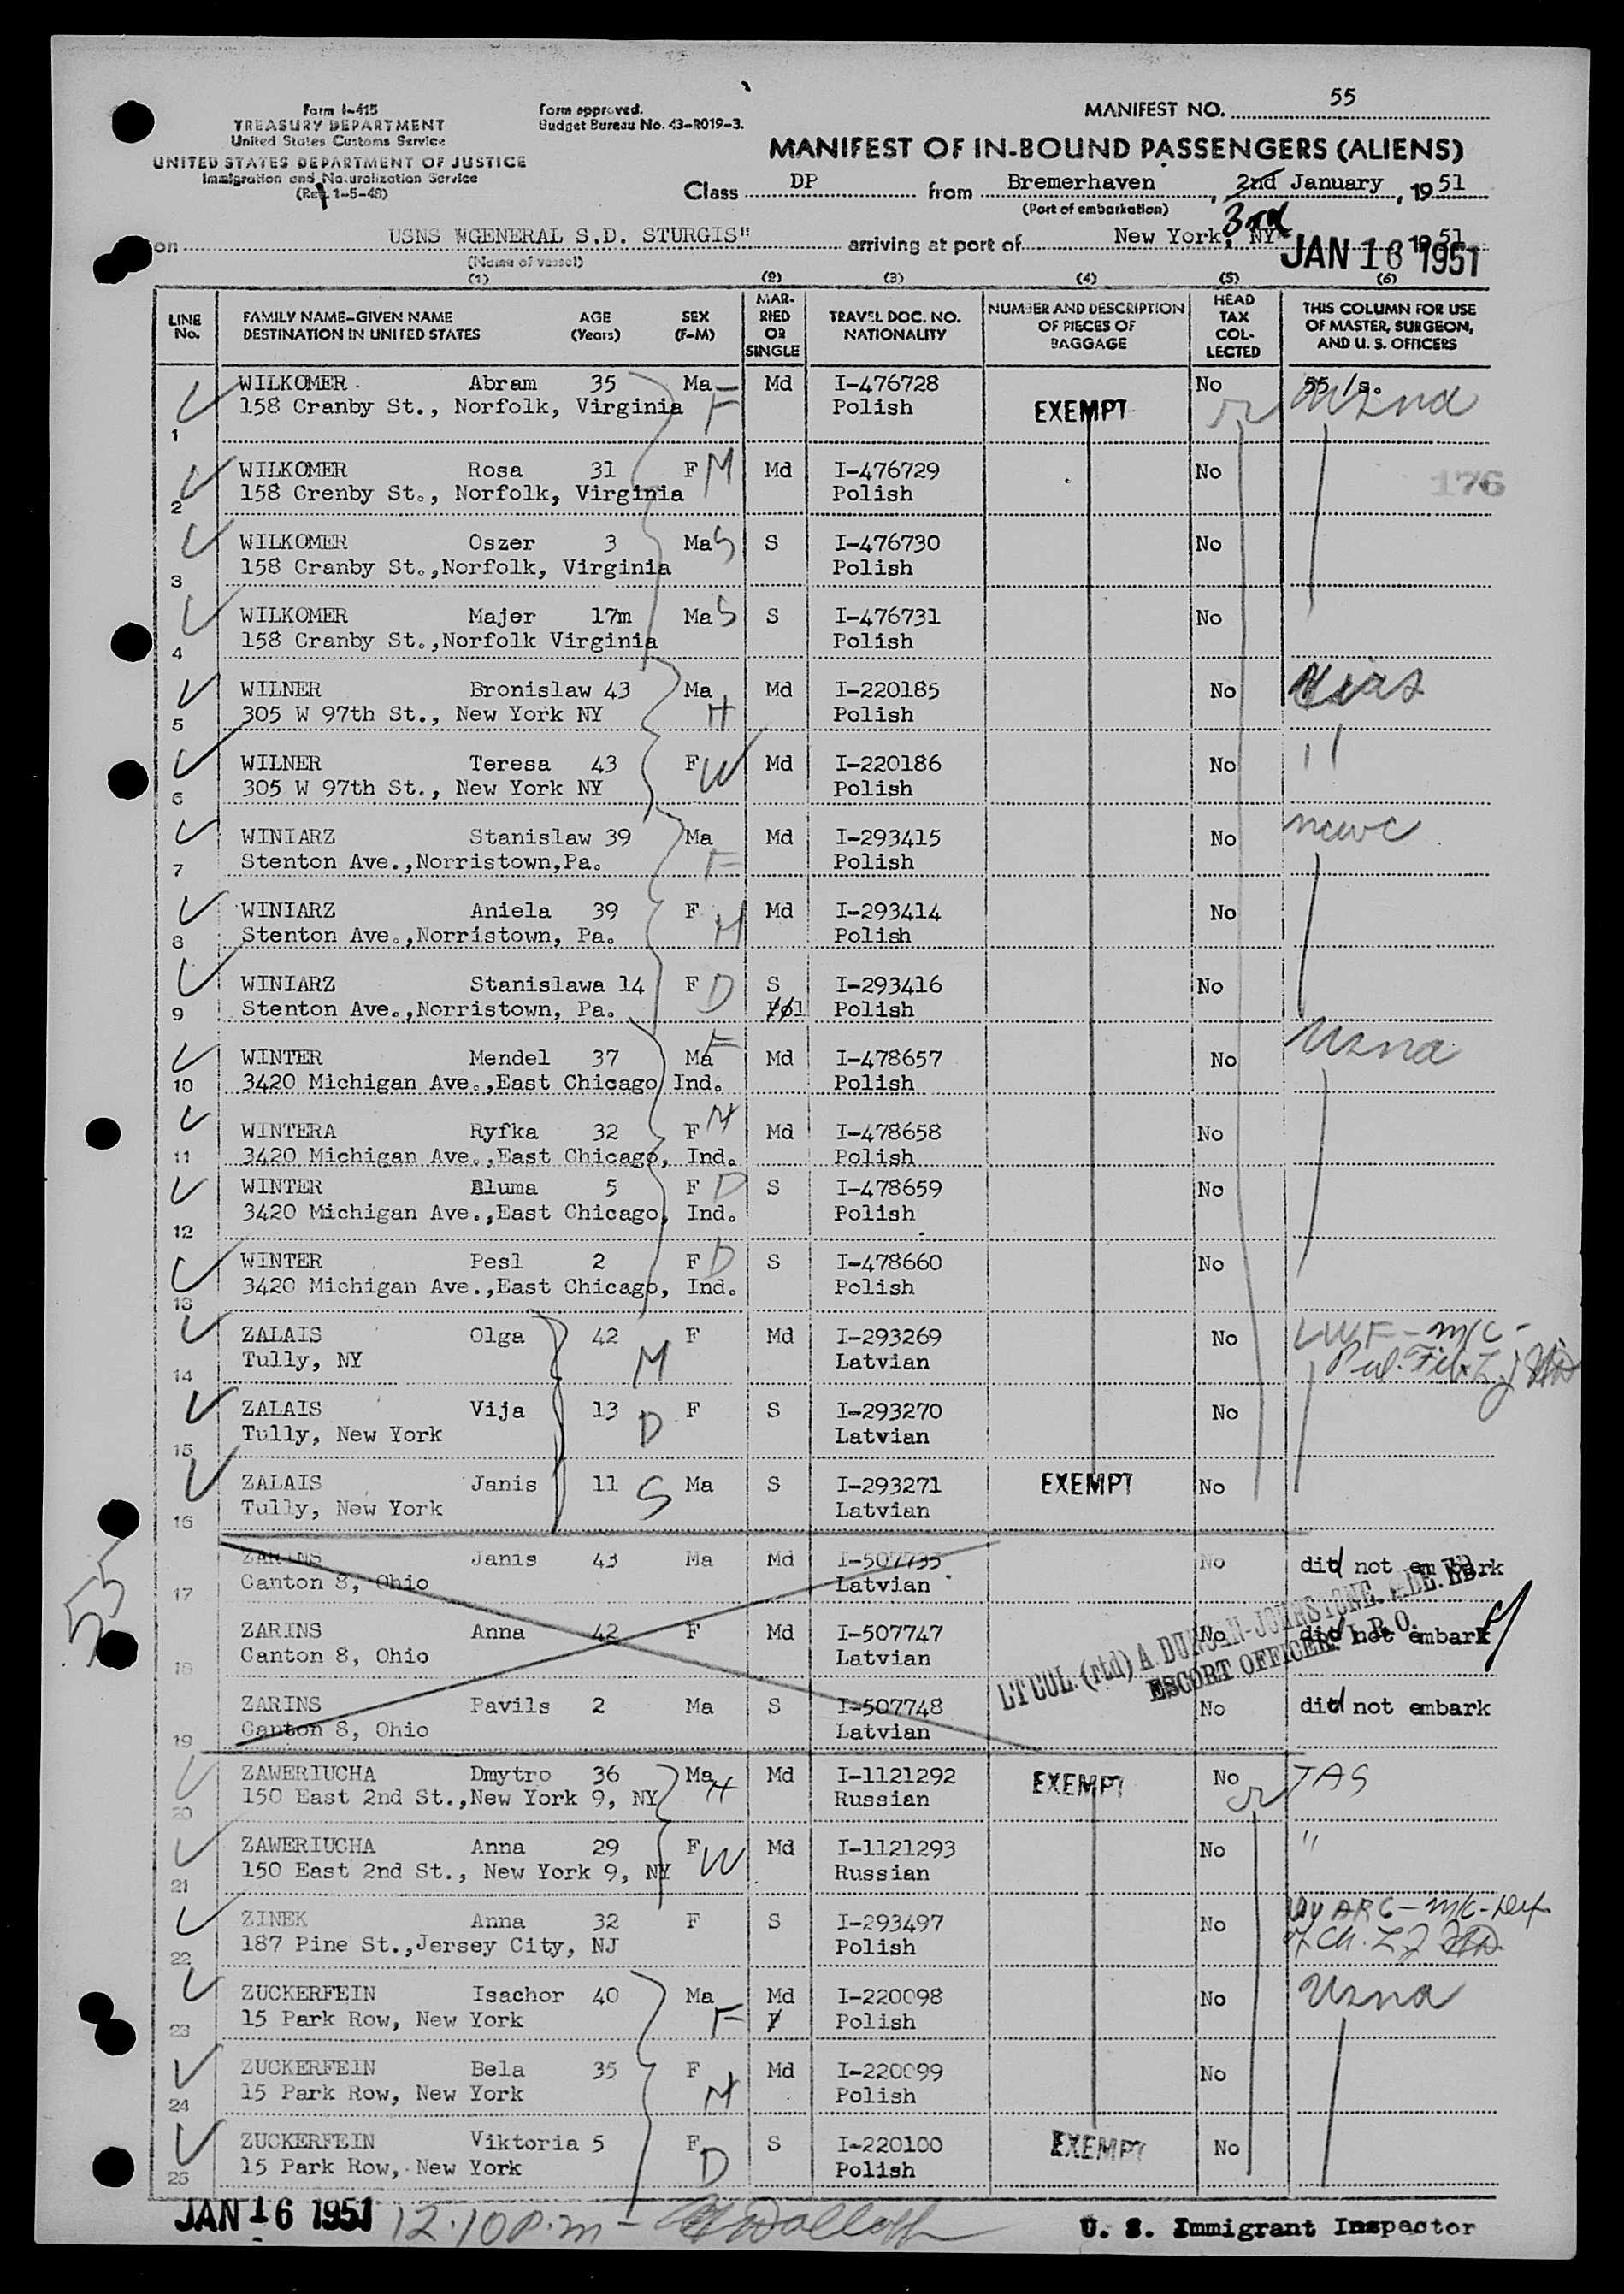 Form I-415
TREASURY DEPARTMENT
United States Customs Service
UNITED STATES DEPARTMENT OF JUSTICE
Immigration and Naturalization Service
(Rev. 1-5-48)
Form approved.
Budget Bureau No. 43-R019-3.
MANIFEST NO. 55
MANIFEST OF IN-BOUND PASSENGERS (ALIENS)
Class DP from Bremerhaven, 2nd January, 1951
(Port of embarkation) 3rd
on USNS WGENERAL S.D. STURGIS" arriving at port of New York, NY 1951
(Name of vessel) JAN 16 1951
(1) (2) (3) (4) (5) (6)
LINE No. FAMILY NAME-GIVEN NAME DESTINATION IN UNITED STATES AGE (Years) SEX (F-M) MARRIED OR SINGLE TRAVEL DOC. NO. NATIONALITY NUMBER AND DESCRIPTION OF PIECES OF BAGGAGE HEAD TAX COLLECTED THIS COLUMN FOR USE OF MASTER, SURGEON, AND U. S. OFFICERS
WILKOMER Abram 35 Ma F Md I-476728 No Usna
1 158 Cranby St., Norfolk, Virginia Polish EXEMPT
WILKOMER Rosa 31 F M Md I-476729 No 176
2 158 Crenby St., Norfolk, Virginia Polish
WILKOMER Oszer 3 Ma S S I-476730 No
3 158 Cranby St.,Norfolk, Virginia Polish
WILKOMER Majer 17m Ma S S I-476731 No
4 158 Cranby St.,Norfolk Virginia Polish
WILNER Bronislaw 43 Ma H Md I-220185 No Hias
5 305 W 97th St., New York NY Polish
WILNER Teresa 43 F W Md I-220186 No "
6 305 W 97th St., New York NY Polish
WINIARZ Stanislaw 39 Ma F Md I-293415 No ncwc
7 Stenton Ave.,Norristown,Pa. Polish
WINIARZ Aniela 39 F M Md I-293414 No
8 Stenton Ave.,Norristown, Pa. Polish
WINIARZ Stanislawa 14 F D S I-293416 No
9 Stenton Ave.,Norristown, Pa. Pol Polish
WINTER Mendel 37 Ma F Md I-478657 No Usna
10 3420 Michigan Ave.,East Chicago Ind. Polish
WINTERA Ryfka 32 F M Md I-478658 No
11 3420 Michigan Ave.,East Chicago, Ind. Polish
WINTER Bluma 5 F D S I-478659 No
12 3420 Michigan Ave.,East Chicago, Ind. Polish
WINTER Pesl 2 F D S I-478660 No
13 3420 Michigan Ave.,East Chicago, Ind. Polish
ZALAIS Olga 42 M F Md I-293269 No LWF - m/c -
14 Tully, NY Latvian
ZALAIS Vija 13 D F S I-293270 No
15 Tully, New York Latvian
ZALAIS Janis 11 S Ma S I-293271 EXEMPT No
16 Tully, New York Latvian
ZARINS Janis 43 Ma Md I-507735 No did not embark
17 Canton 8, Ohio Latvian
55
ZARINS Anna 42 F Md I-507747 No did not embark
18 Canton 8, Ohio Latvian
LT COL. (rtd) A. DUNCAN-JOHNSTONE.
ESCORT OFFICER I.R.O.
ZARINS Pavils 2 Ma S I-507748 No did not embark
19 Canton 8, Ohio Latvian
ZAWERIUCHA Dmytro 36 Ma H Md I-1121292 EXEMPT No
20 150 East 2nd St.,New York 9, NY Russian
ZAWERIUCHA Anna 29 F W Md I-1121293 No "
21 150 East 2nd St., New York 9, NY Russian
ZINEK Anna 32 F S I-293497 No
22 187 Pine St.,Jersey City, NJ Polish
ZUCKERFEIN Isachor 40 Ma F Md I-220098 No Usna
23 15 Park Row, New York Polish
ZUCKERFEIN Bela 35 F M Md I-220099 No
24 15 Park Row, New York Polish
ZUCKERFEIN Viktoria 5 F D S I-220100 EXEMPT No
25 15 Park Row, New York Polish
JAN 16 1951 12.10 P.m - U. S. Immigrant Inspector